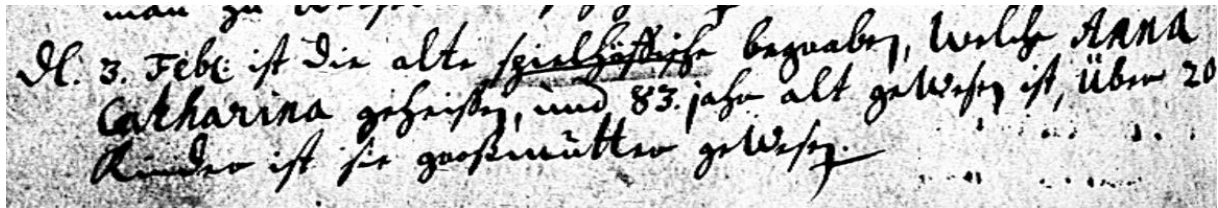 man zu
Dl. 3. Febr. ist die alte spielhöffische begraben, welche Anna
Catharina geheißen, und 83. jahr alt gewesen ist, über 20
Kinder ist sie großmutter gewesen.